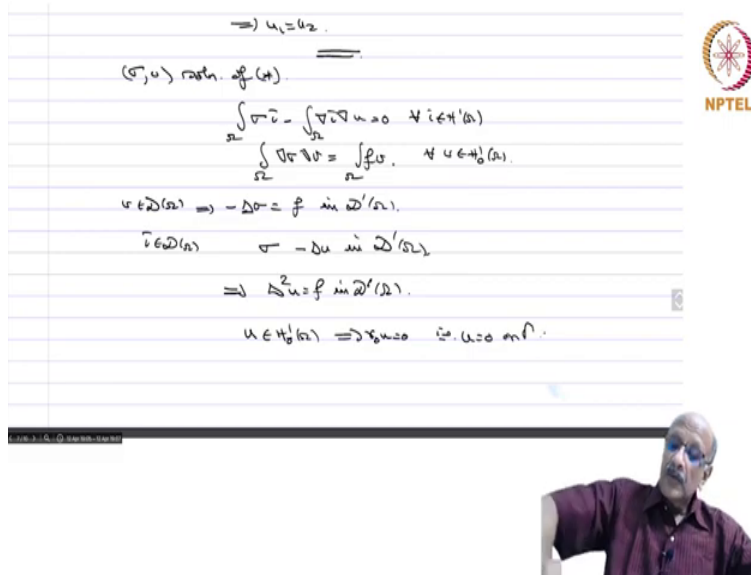 ⇒ u₁ = u₂.
(σ, u) soln. of (*).
∫_Ω σ τ - ∫_Ω ∇τ ∇u = 0 ∀ τ ∈ H¹(Ω)
∫_Ω ∇σ ∇v = ∫_Ω f v. ∀ v ∈ H₀¹(Ω).
v ∈ D(Ω) ⇒ -Δσ = f in D'(Ω).
τ ∈ D(Ω) σ - Δu in D'(Ω)
⇒ Δ²u = f in D'(Ω).
u ∈ H₀¹(Ω) ⇒ γ₀u = 0 i.e. u = 0 on Γ.
NPTEL